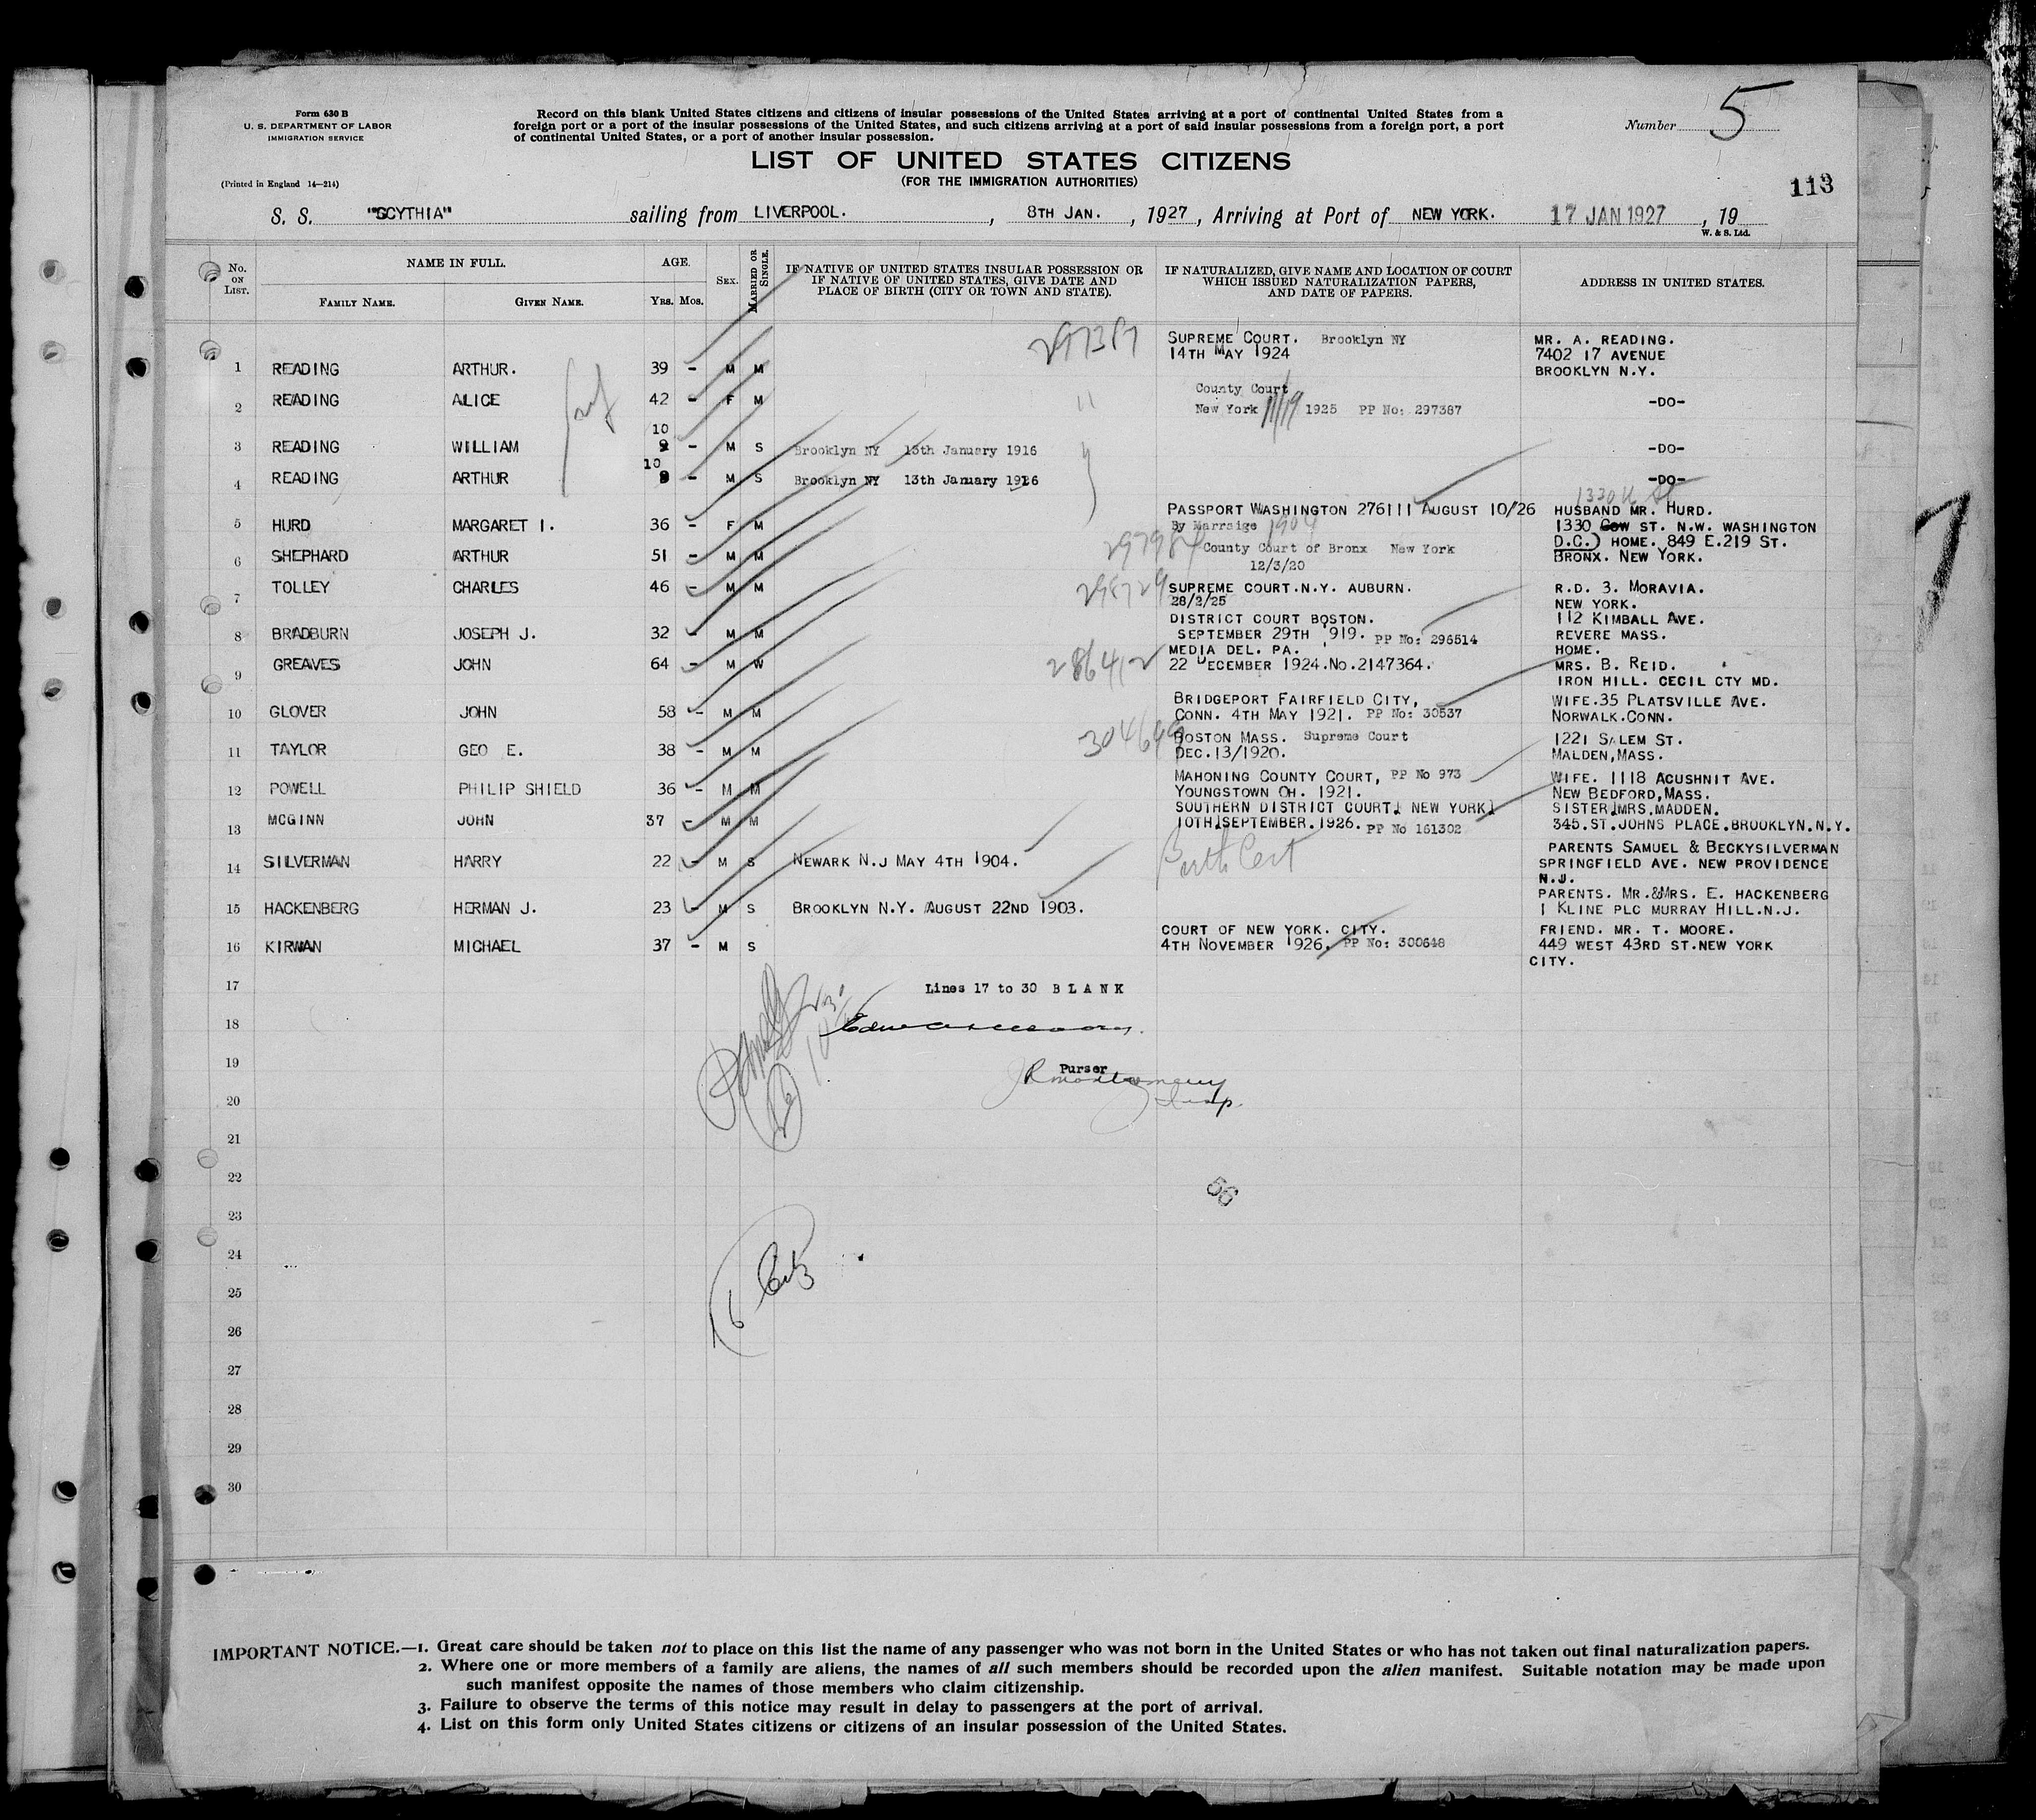 Form 630 B
U. S. DEPARTMENT OF LABOR
IMMIGRATION SERVICE
(Printed in England 14—214)
Record on this blank United States citizens and citizens of insular possessions of the United States arriving at a port of continental United States from a
foreign port or a port of the insular possessions of the United States, and such citizens arriving at a port of said insular possessions from a foreign port, a port
of continental United States, or a port of another insular possession.
Number 5
LIST OF UNITED STATES CITIZENS
(FOR THE IMMIGRATION AUTHORITIES)
113
S. S. "SCYTHIA" sailing from LIVERPOOL. , 8TH JAN. , 1927 , Arriving at Port of NEW YORK. 17 JAN 1927 , 19
W. & S. Ltd.
No. ON LIST. NAME IN FULL. FAMILY NAME. GIVEN NAME. AGE. YRS. MOS. SEX. MARRIED OR SINGLE.
IF NATIVE OF UNITED STATES INSULAR POSSESSION OR
IF NATIVE OF UNITED STATES, GIVE DATE AND
PLACE OF BIRTH (CITY OR TOWN AND STATE).
IF NATURALIZED, GIVE NAME AND LOCATION OF COURT
WHICH ISSUED NATURALIZATION PAPERS,
AND DATE OF PAPERS.
ADDRESS IN UNITED STATES.
297387 SUPREME COURT. Brooklyn NY MR. A. READING.
14TH MAY 1924 7402 17 AVENUE
1 READING ARTHUR. 39 - M M BROOKLYN N.Y.
County Court
2 READING ALICE 42 - F M " New York 11/19 1925 PP No: 297387 -DO-
10
3 READING WILLIAM 9 - M S Brooklyn NY 13th January 1916 -DO-
10
4 READING ARTHUR 8 - M S Brooklyn NY 13th January 1916 -DO-
1330 U St
PASSPORT WASHINGTON 276111 AUGUST 10/26 HUSBAND MR. HURD.
5 HURD MARGARET I. 36 - F M By Marraige 1904 1330 Cow ST. N.W. WASHINGTON
D.C.) HOME. 849 E.219 ST.
6 SHEPHARD ARTHUR 51 - M M 297984 County Court of Bronx New York BRONX. NEW YORK.
12/3/20
7 TOLLEY CHARLES 46 - M M 298729 SUPREME COURT.N.Y. AUBURN. R.D. 3. MORAVIA.
28/2/25 NEW YORK.
DISTRICT COURT BOSTON. 112 KIMBALL AVE.
8 BRADBURN JOSEPH J. 32 - M M SEPTEMBER 29TH '919. PP No: 296514 REVERE MASS.
MEDIA DEL. PA. HOME.
9 GREAVES JOHN 64 - M W 286412 22 DECEMBER 1924.No.2147364. MRS. B. REID.
IRON HILL. CECIL CTY MD.
BRIDGEPORT FAIRFIELD CITY, WIFE.35 PLATSVILLE AVE.
10 GLOVER JOHN 58 - M M CONN. 4TH MAY 1921. PP No: 30537 NORWALK.CONN.
11 TAYLOR GEO E. 38 - M M BOSTON MASS. Supreme Court 1221 SALEM ST.
DEC.13/1920. MALDEN,MASS.
MAHONING COUNTY COURT, PP No 973 WIFE. 1118 ACUSHNIT AVE.
12 POWELL PHILIP SHIELD 36 - M M YOUNGSTOWN OH. 1921. NEW BEDFORD,MASS.
SOUTHERN DISTRICT COURT, NEW YORK SISTER MRS.MADDEN.
13 MCGINN JOHN 37 - M M 10TH SEPTEMBER.1926. PP No 161302 345.ST.JOHNS PLACE.BROOKLYN.N.Y.
PARENTS SAMUEL & BECKYSILVERMAN
14 SILVERMAN HARRY 22 - M S NEWARK N.J MAY 4TH 1904. Birth Cert SPRINGFIELD AVE. NEW PROVIDENCE
N.J.
PARENTS. MR.&MRS. E. HACKENBERG
15 HACKENBERG HERMAN J. 23 - M S BROOKLYN N.Y. AUGUST 22ND 1903. 1 KLINE PLC MURRAY HILL.N.J.
COURT OF NEW YORK. CITY. FRIEND. MR. T. MOORE.
16 KIRWAN MICHAEL 37 - M S 4TH NOVEMBER 1926. PP No: 300648 449 WEST 43RD ST.NEW YORK
CITY.
17 Lines 17 to 30 B L A N K
18
19 Purser
JRMontgomery
20 Insp.
21
22 56
23
24
25
26
27
28
29
30
IMPORTANT NOTICE.—1. Great care should be taken not to place on this list the name of any passenger who was not born in the United States or who has not taken out final naturalization papers.
2. Where one or more members of a family are aliens, the names of all such members should be recorded upon the alien manifest. Suitable notation may be made upon
such manifest opposite the names of those members who claim citizenship.
3. Failure to observe the terms of this notice may result in delay to passengers at the port of arrival.
4. List on this form only United States citizens or citizens of an insular possession of the United States.